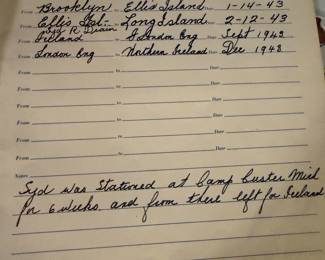 From Brooklyn to Ellis Island Date 1-14-43
From Ellis Isl- to Long Island Date 2-12-43
From Ireland to London Eng Date Sept 1942
From London Eng to Northern Ireland Date Dec 1948
From to Date
From to Date
From to Date
From to Date
From to Date
From to Date
Notes
Syd was Stationed at Camp Custer Mich
for 6 weeks and from there left for Ireland